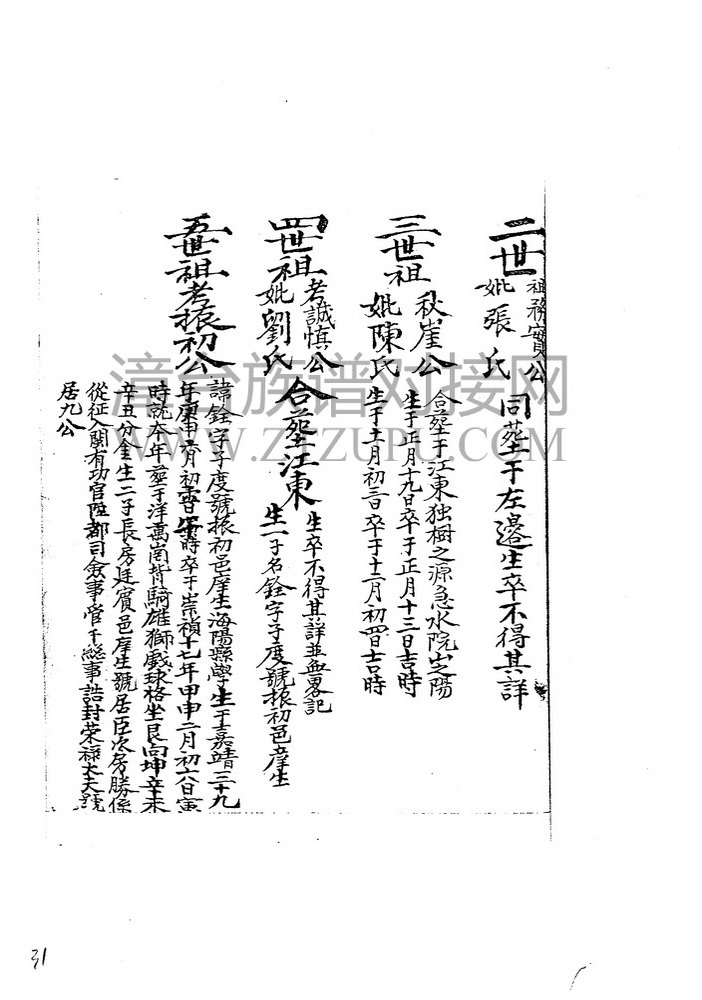 二世
祖務實公
妣張氏
同塟于左邉生卒不得其詳
三世祖
秋崖公
妣陳氏
合塟于江東独樹之源急水院山之陽
生于正月十九日卒于正月十三日吉時
生于十一月初三日卒于十二月初四日吉時
四世祖
考誠慎公
妣劉氏
合塟江東
生卒不得其詳並無畧记
生一子名銓字子度號振初邑庠生
五世祖考振初公
諱銓字子度號振初邑庠生海陽縣學生于嘉靖三十九
年庚申六月初 時卒于崇禎十七年甲申二月初六日寅
時就本年塟于洋萬崗背騎雄獅戲球格坐艮向坤辛未
辛丑分金生二子長房廷賓邑庠生號居臣次房勝係
從征入關有功官陞都司僉事管千總事誥封荣禄大夫號
居九公
漳台族谱对接网
WWW.ZTZUPU.COM
31